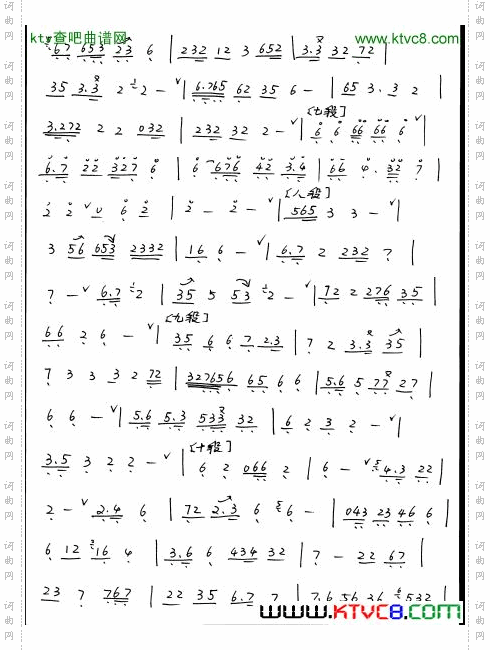 ktv查吧曲谱网 www.ktvc8.com
67 653 23 6 | 232 12 3 652 | 3.3 32 72 |
35 3.3 2 2 - ∨ | 6.765 62 35 6 - | 65 3.3 2
[七段]
3.272 2 2 032 | 232 32 2 - ∨ | 6 6 66 66 6 ∨
6.7 22 327 6 | 6 676 42 3.4 | 66 4.32 7 |
[八段]
2 2 ∨ 0 6 2 | 2 - 2 - ∨ | 565 3 3 - ∨ |
3 56 653 2332 | 16 6 - ∨ | 6.7 2 232 7 |
7 - ∨ 6.7 2 | 35 5 53 2 - ∨ | 72 2 276 35 |
[九段]
66 2 6 - ∨ | 35 6 6 7 2.3 | 7 2 3.3 35 |
7 3 3 3 2 72 | 327656 65 6 6 | 5.6 5 77 27 |
6 6 - ∨ | 5.6 5.3 533 32 | 6 2 3 2 - ∨ |
[十段]
3.5 3 2 2 - ∨ | 6 2 066 2 | 6 - ∨ 4.3 22 |
2 - ∨ 2.4 6 | 72 2.3 6 6 - | 043 23 46 6 |
6 12 16 4 | 3.6 6 434 32 | 7 - 22 67 |
23 7 767 | 22 35 6.7 7 | 7.6 56 36 532 |
WWW.KTVC8.COM
词曲网